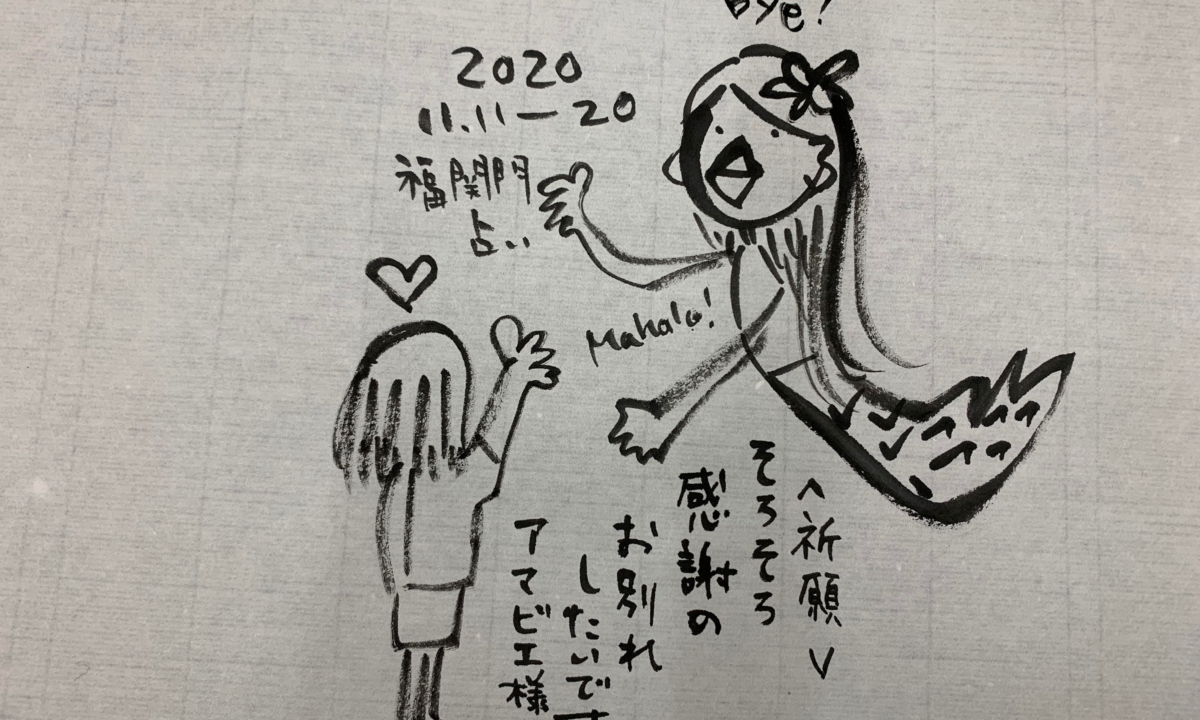 Bye!
2020
11.11—20
福関門
占い
Mahalo!
<祈願>
そろそろ
感謝の
お別れ
したいです
アマビエ様